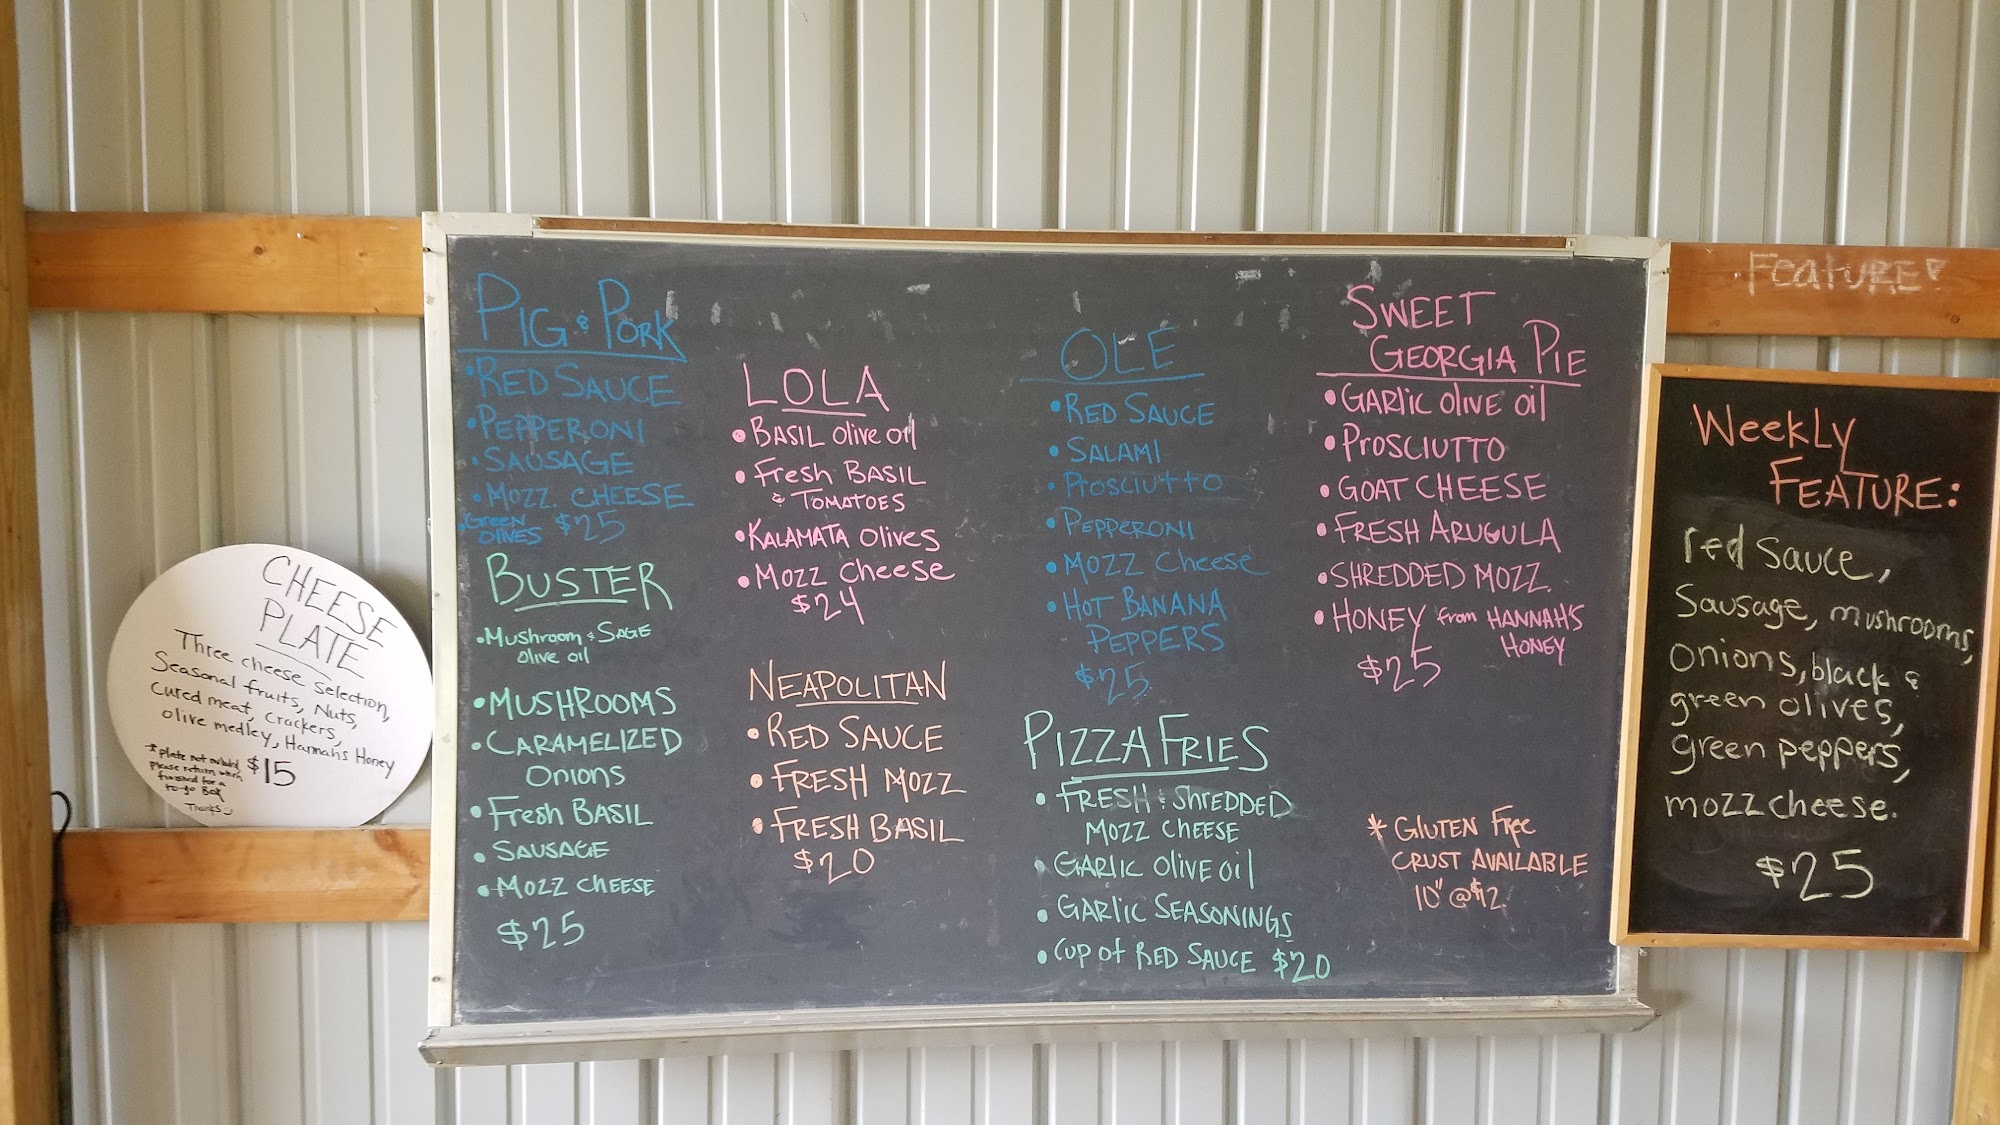 CHEESE
PLATE
Three cheese selection,
Seasonal fruits, Nuts,
Cured meat, Crackers,
olive medley, Hannahs Honey
*plate not included,
please return when
finished for a
to-go Box
Thanks
$15
PIG & PORK
• RED SAUCE
• PEPPERONI
• SAUSAGE
• MOZZ. CHEESE
• Green
OLIVES
$25
BUSTER
• Mushroom & SAGE
olive oil
• MUSHROOMS
• CARAMELIZED
Onions
• Fresh BASIL
• SAUSAGE
• MOZZ CHEESE
$25
LOLA
• BASIL Olive oil
• Fresh BASIL
& TOMATOES
• KALAMATA Olives
• MOZZ Cheese
$24
NEAPOLITAN
• RED SAUCE
• FRESH MOZZ
• FRESH BASIL
$20
OLE
• RED SAUCE
• SALAMI
• Prosciutto
• PEPPERONI
• MOZZ Cheese
• HOT BANANA
PEPPERS
$25
PIZZA FRIES
• FRESH & SHREDDED
MOZZ CHEESE
• GARLIC Olive Oil
• GARLIC SEASONINGS
• Cup of RED SAUCE $20
SWEET
GEORGIA PIE
• GARLIC OLIVE OIL
• PROSCIUTTO
• GOAT CHEESE
• FRESH ARUGULA
• SHREDDED MOZZ.
• HONEY from HANNAH'S
HONEY
$25
* GLUTEN Free
CRUST AVAILABLE
10" @ $12
FeatURE!
Weekly
FEATURE:
red sauce,
Sausage, mushrooms,
onions, black &
green olives,
green peppers,
mozz cheese.
$25